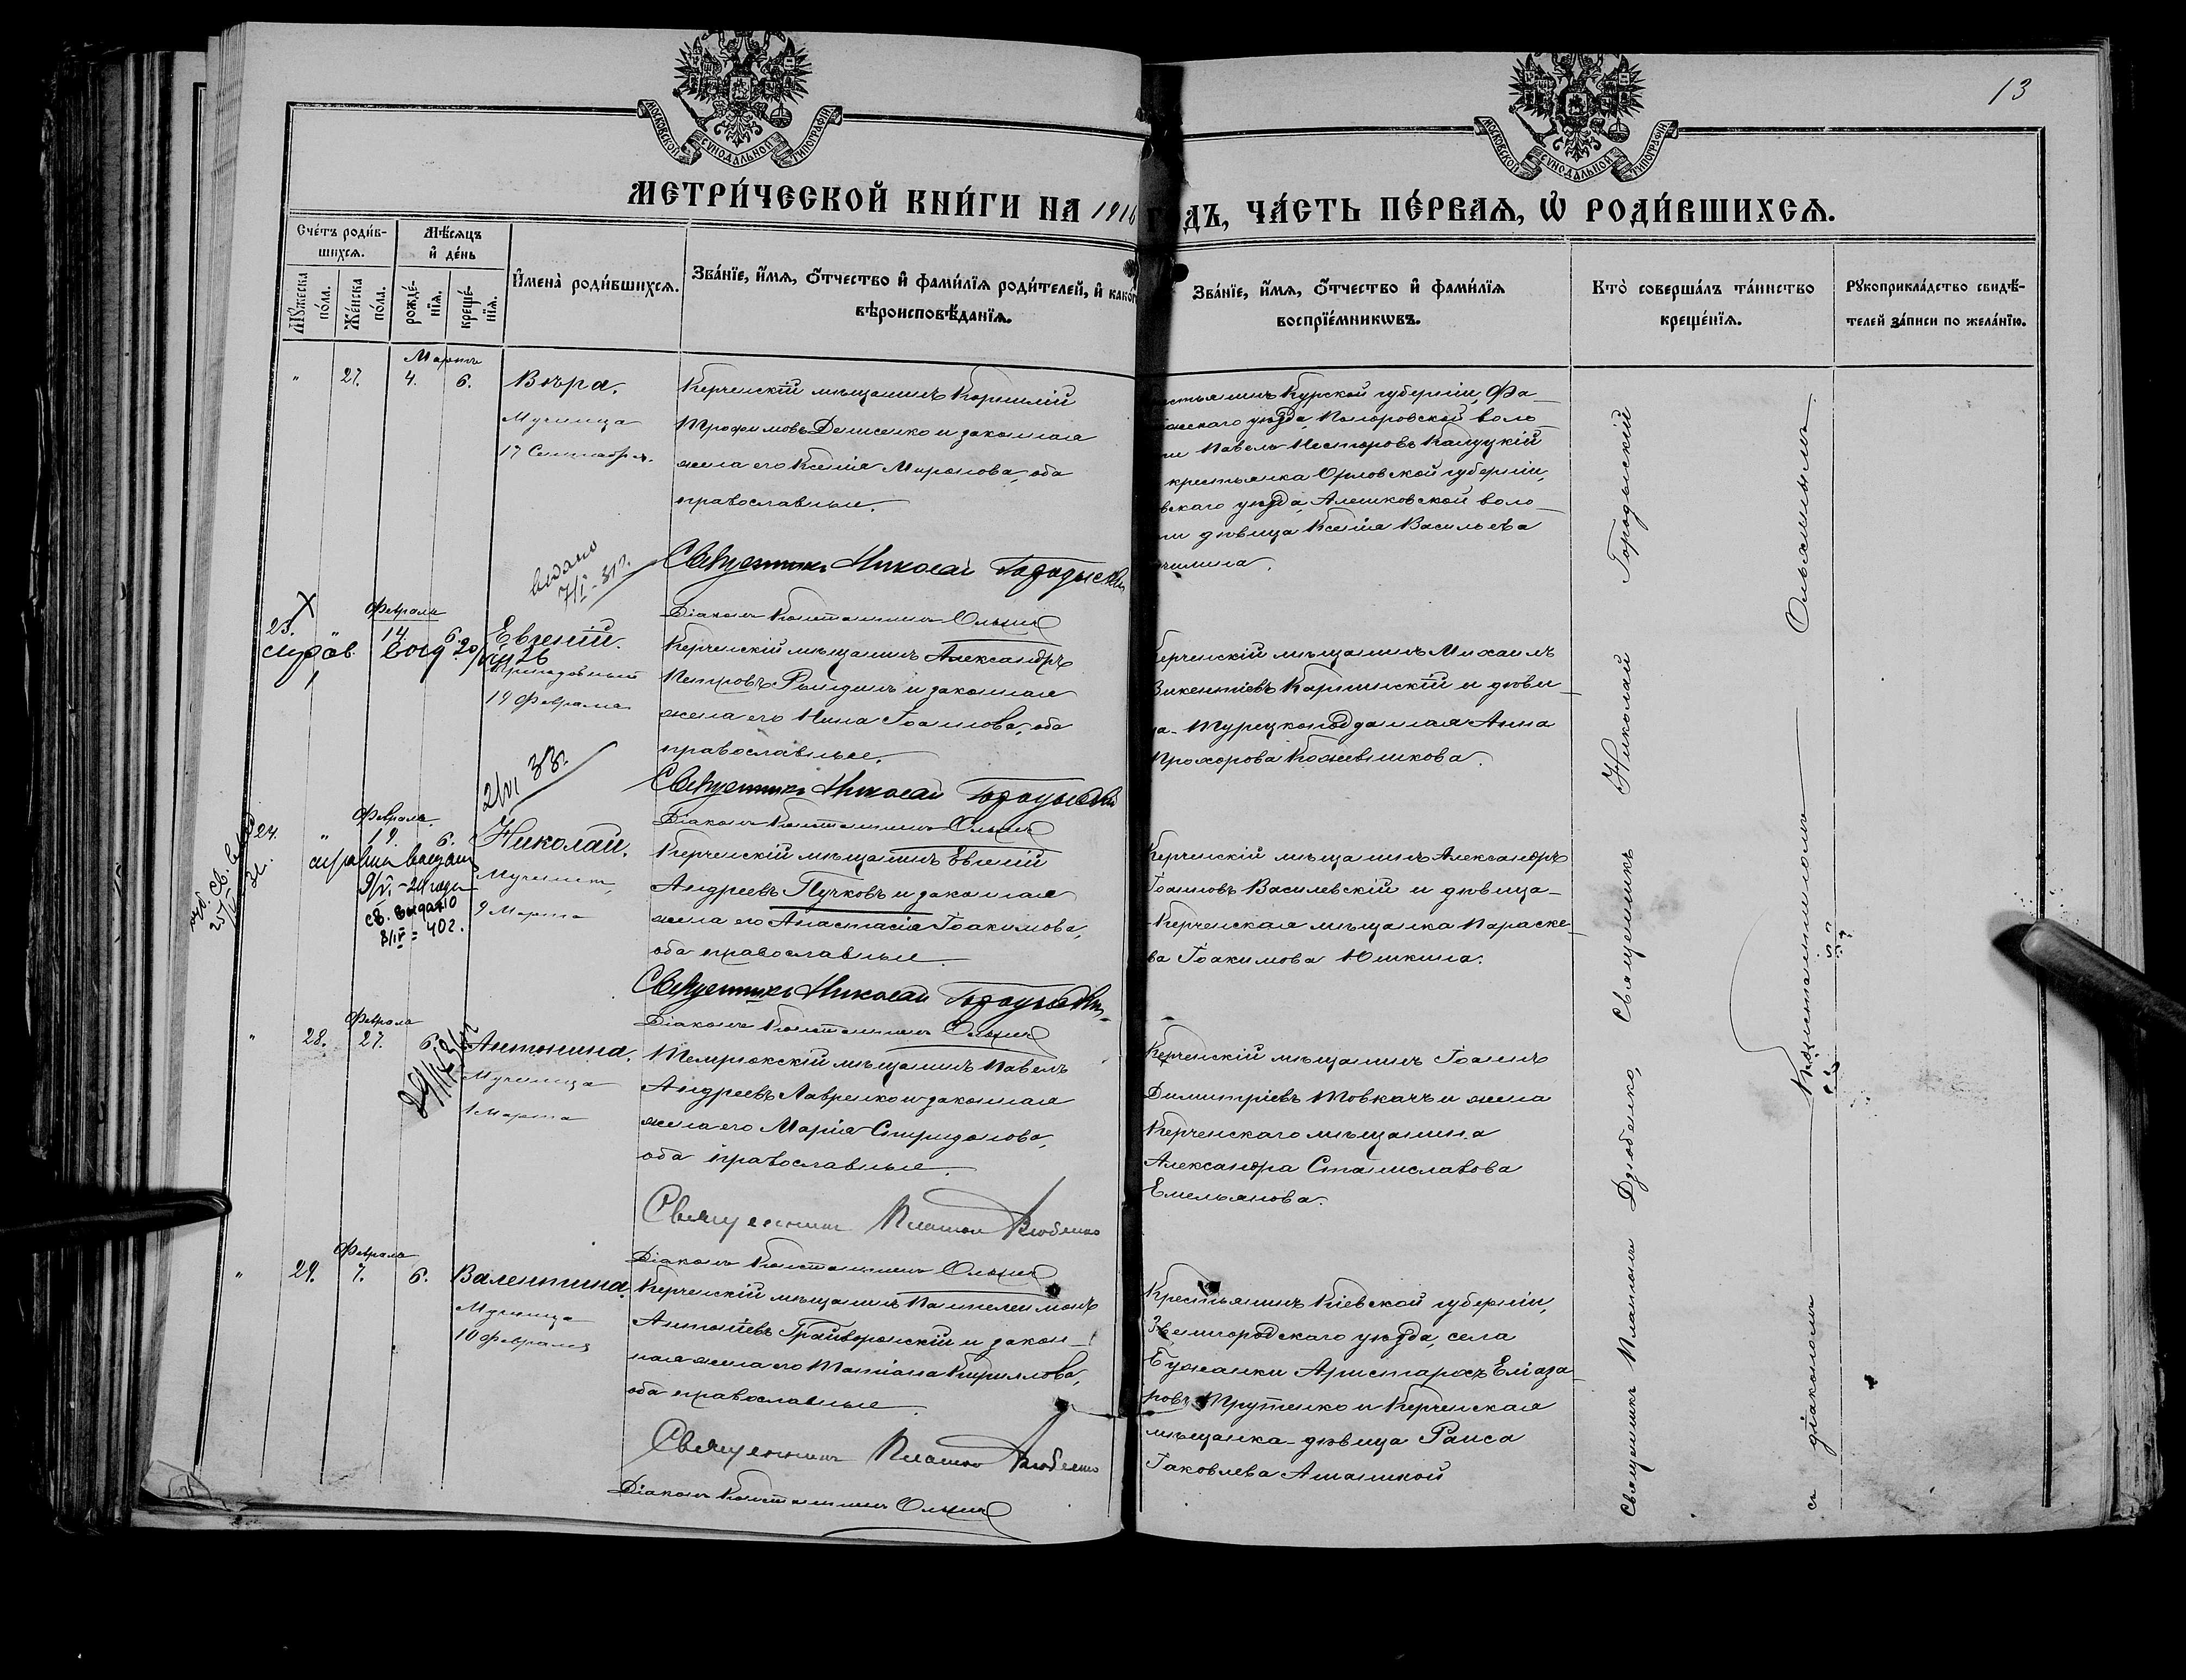 13
МОСКОВСКОЙ СѴНОДАЛЬНОЙ ТИПОГРАФІИ
МОСКОВСКОЙ СѴНОДАЛЬНОЙ ТИПОГРАФІИ
МЕТРИ́ЧЕСКОЙ КНИ́ГИ НА 1916 ГОДЪ, ЧА́СТЬ ПЕ́РВАѦ, Ѡ҆ РОДИ́ВШИХСѦ.
Сче́тъ роди́в-
шихсѧ.
Мꙋ́жеска по́ла.
Же́нска по́ла.
Мѣ́сѧцъ
и҆ де́нь
рожде́-
нїѧ.
креще́-
нїѧ.
И҆мена̀ роди́вшихсѧ.
Зва́нїе, и҆́мѧ, ѻ҆́тчество и҆ фами́лїѧ роди́телей, и҆ како́г
вѣроисповѣ́данїѧ.
Зва́нїе, и҆́мѧ, ѻ҆́тчество и҆ фами́лїѧ
воспрїе́мникѡвъ.
Кто̀ соверша́лъ та́инство
креще́нїѧ.
Рꙋкоприкла́дство свидѣ́-
телей за́писи по жела́нїю.
Мартъ
" 27. 4. 6. Вѣра.
Мученица
17 Сентября.
Керченскій мѣщанинъ Корнилій
Трофимовъ Денисенко и законная
жена его Ксенія Миронова, оба
православные.
Священникъ Николай Городыскій
Діаконъ Константинъ Ольхинъ
стьянинъ Курской губерніи, Фа-
тежскаго уѣзда, Нагоровской воло-
ти Павелъ Несторовъ Калуцкій
крестьянка Орловской губерніи,
вскаго уѣзда, Алешковской воло-
ти дѣвица Ксенія Васильева
чилина.
выдано
Февраль
23. " 14. 6. Евгеній.
Преподобный
14 Февраля
справ. выд. 20/
Керченскій мѣщанинъ Александръ
Петровъ Рындинъ и законная
жена его Нина Іоаннова, оба
православные.
Священникъ Николай Городыскій
Діаконъ Константинъ Ольхинъ
Керченскій мѣщанинъ Михаилъ
Викентіевъ Карпинскій и дѣви-
ца-Турецкоподданная Анна
Прохорова Кожевникова.
2/VI 33.
Февраль
24. " 19. 6. Николай.
Мученикъ,
9 Марта
справка выдана
9/VI-24 года
св. выдано
8/IV = 40г.
Керченскій мѣщанинъ Евгеній
Андреевъ Пучковъ и законная
жена его Анастасія Іоакимова,
оба православные.
Священникъ Николай Городыскій
Діаконъ Константинъ Ольхинъ
Керченскій мѣщанинъ Александръ
Іоанновъ Василевскій и дѣвица-
Керченская мѣщанка Параске-
ва Іоакимова Юшкина.
Февраль
" 28. 27. 6. Антонина.
Мученица
1 Марта
Темрюкскій мѣщанинъ Павелъ
Андреевъ Лавренко и законная
жена его Марія Спиридонова,
оба православные.
Священникъ Платонъ Дзюбенко
Діаконъ Константинъ Ольхинъ
Керченскій мѣщанинъ Іоаннъ
Димитріевъ Товкачъ и жена
Керченскаго мѣщанина
Александра Станиславова
Емельянова.
Февраль
" 29. 7. 6. Валентина.
Мученица
10 Февраля
Керченскій мѣщанинъ Пантелеимонъ
Антоніевъ Грайворонскій и закон-
ная жена его Татіана Кириллова,
оба православные.
Священникъ Платонъ Дзюбенко
Діаконъ Константинъ Ольхинъ
Крестьянинъ Кіевской губерніи,
Звенигородскаго уѣзда, села
Бужанки Аристархъ Еліаза-
ровъ Трутенко и Керченская
мѣщанка-дѣвица Раиса
Іаковлева
Священникъ Платонъ Дзюбенко, Священникъ Николай Городыскій
съ діакономъ Константиномъ Ольхинымъ.